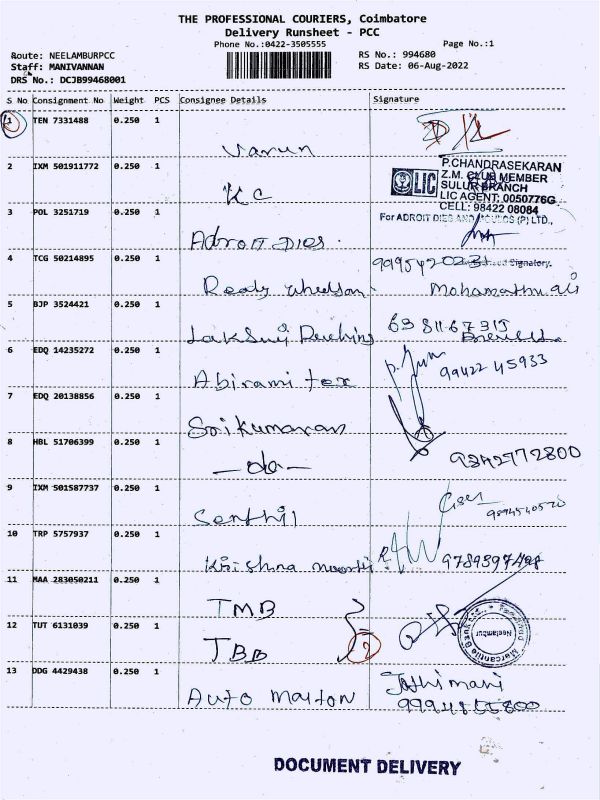 THE PROFESSIONAL COURIERS, Coimbatore
Delivery Runsheet - PCC
Phone No.:0422-3505555
Page No.:1
Route: NEELAMBURPCC
RS No.: 994680
Staff: MANIVANNAN
RS Date: 06-Aug-2022
DRS No.: DCJB99468001
S No Consignment No Weight PCS Consignee Details Signature
1 TEN 7331488 0.250 1
Varun
2 IXM 501911772 0.250 1
KC
P.CHANDRASEKARAN
Z.M. CLUB MEMBER
LIC SULUR BRANCH
LIC AGENT: 0050776G
CELL: 98422 08084
3 POL 3251719 0.250 1
For ADROIT DIES AND MOULDS (P) LTD.,
Adroit Dies.
4 TCG 50214895 0.250 1
Authorised Signatory.
Ready
5 BJP 3524421 0.250 1
6 EDQ 14235272 0.250 1
Abirami tex
99422 45933
7 EDQ 20138856 0.250 1
Sri Kumaran
8 HBL 51706399 0.250 1
—do—
9342772800
9 IXM 501587737 0.250 1
Senthil
9894540520
10 TRP 5757937 0.250 1
Krishna
11 MAA 283050211 0.250 1
TMB
12 TUT 6131039 0.250 1
Tamilnad Mercantile Bank Ltd.
Neelambur
TBB
2
13 DDG 4429438 0.250 1
Jothimani
Auto
DOCUMENT DELIVERY